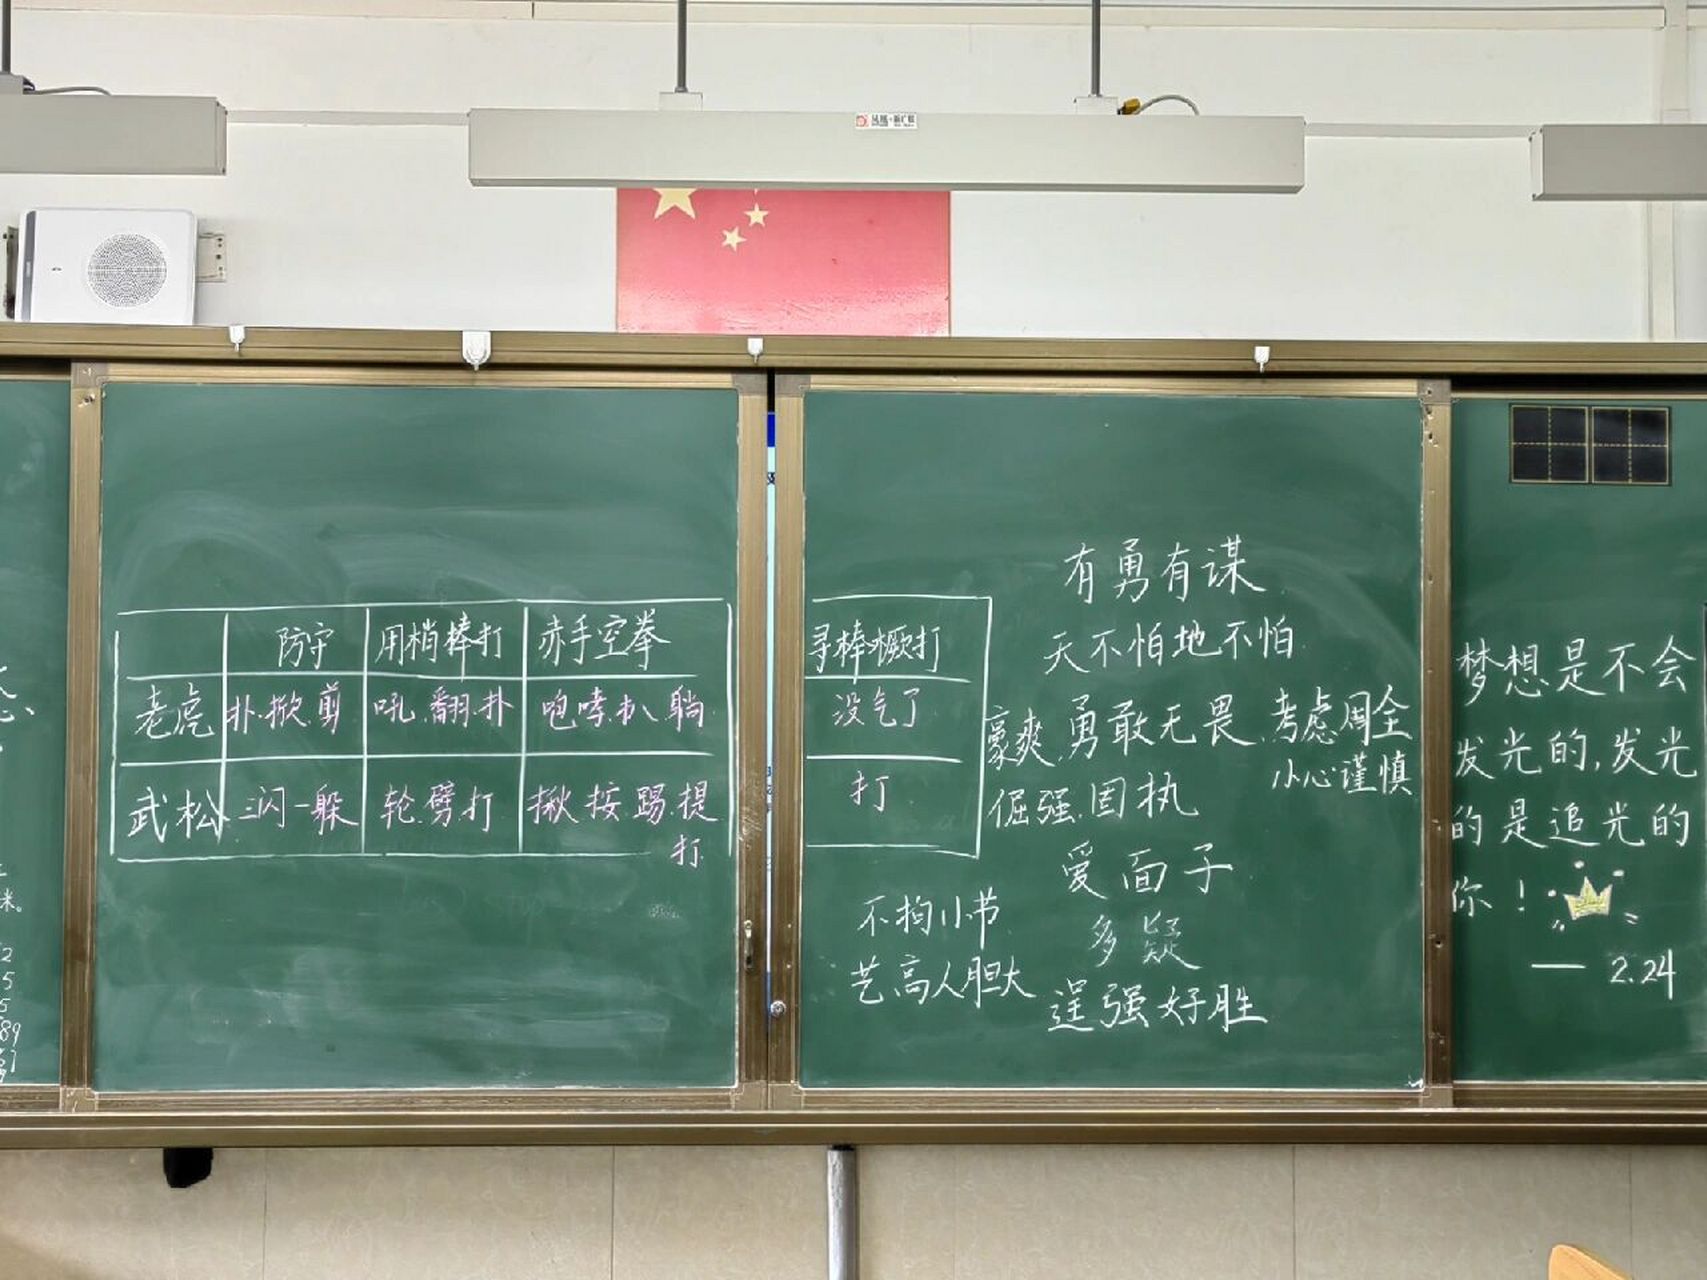 防守 用梢棒打 赤手空拳 寻棒橛打
老虎 扑.掀.剪 吼.翻.扑 咆哮.扒.躺 没气了
武松 三闪一躲 轮.劈.打 揪.按.踢.提 打
打
有勇有谋
天不怕地不怕
豪爽.勇敢无畏.考虑周全
小心谨慎
倔强.固执
爱面子
不拘小节
多疑
艺高人胆大
逞强好胜
梦想是不会
发光的,发光
的是追光的
你！
— 2.24